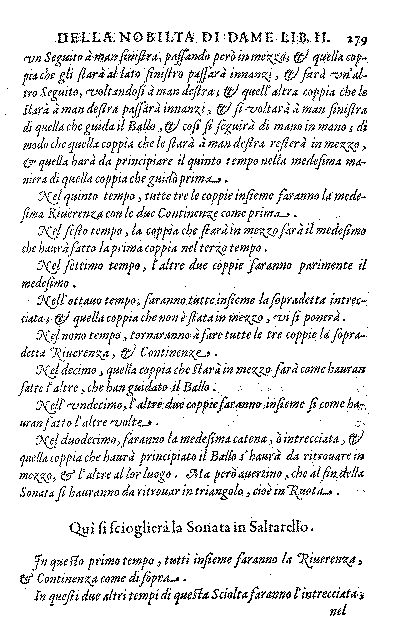 DELLA NOBILTA DI DAME LIB. II. 279
vn Seguito à man sinistra, passando però in mezzo; & quella cop-
pia che gli starà al lato sinistro passarà innanzi, & farà vn'al-
tro Seguito, voltandosi à man destra; & quell'altra coppia che le
starà à man destra passarà innanzi; & si voltarà à man sinistra
di quella che guida il Ballo, & così si seguirà di mano in mano; di
modo che quella coppia che le starà à man destra resterà in mezzo,
& quella harà da principiare il quinto tempo nella medesima ma-
niera di quella coppia che guidò prima.
Nel quinto tempo, tutte tre le coppie insieme faranno la mede-
sima Riuerenza con le due Continenze come prima.
Nel sesto tempo, la coppia che starà in mezzo farà il medesimo
che haurà fatto la prima coppia nel terzo tempo.
Nel settimo tempo, l'altre due coppie faranno parimente il
medesimo.
Nell'ottauo tempo, faranno tutte insieme la sopradetta intrec-
ciata, & quella coppia che non è stata in mezzo, vi si ponerà.
Nel nono tempo, tornaranno à fare tutte le tre coppie la sopra-
detta Riuerenza, & Continenze.
Nel decimo, quella coppia che starà in mezzo farà come hauran
fatte l'altre, che han guidato il Ballo.
Nell'vndecimo, l'altre due coppie faranno insieme si come ha-
uran fatto l'altre volte.
Nel duodecimo, faranno la medesima catena, ò intrecciata, &
quella coppia che haurà principiato il Ballo s'haurà da ritrouare in
mezzo, & l'altre al lor luogo. Ma però auertino, che al fin della
Sonata si hauranno da ritrouar in triangolo, cioè in Ruota.
Qui si scioglierà la Sonata in Saltarello.
In questo primo tempo, tutti insieme faranno la Riuerenza,
& Continenza come di sopra.
In questi due altri tempi di questa Sciolta faranno l'intrecciata;
nel